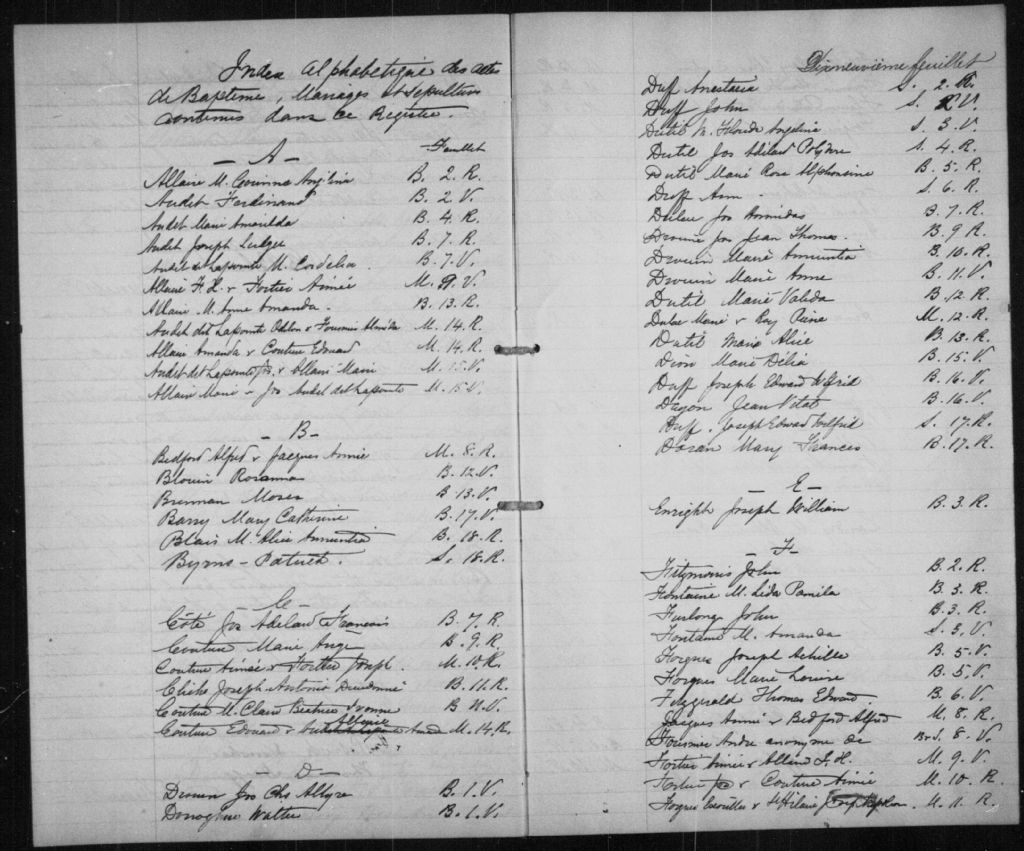 Index Alphabetique des actes
de Bapteme, Mariages et Sepultures
contenus dans ce Registre.
— A — Feuillet
Allaire M. Corinna Angelina B. 2. R.
Audet Ferdinand B. 2. V.
Audet Marie Amarilda B. 4. R.
Audet Joseph Ludger B. 7. R.
Audet det Lapointe M. Cordelia. B. 7. V.
Allaire F. X. & Fortier Aimée M. 9. V.
Allaire M. Amanda. B. 13. R.
Audet det Lapointe Odilon & Fournier M. 14. R.
Allaire Amanda & Couture Edouard M. 14. R.
Audet det Lapointe Jos. & Allaire Marie M. 15. V.
Allaire Marie & Jos Audet det Lapointe M. 15. V.
— B —
Bedford Alfred & Jacques Annie M. 8. R.
Blouin Rosanna B. 12. V.
Brennan Moses B. 13. V.
Barry Mary Catherine B. 17. V.
Blais M. Alice Annuntia B. 18. R.
Byrns - Patrick. S. 18. R.
C
Côté Jos Adelard Francois B. 7. R.
Couture Marie Ange B. 9. R.
Couture Aimée & Fortier Joseph. M. 10. R.
Cliche Joseph Antonio Dieudonné B. 11. R.
Couture M. Claire Beatrice Ivonne B. 11. V.
Couture Edouard & M. 14. R.
— D —
Drouin Jos Chs B. 1. V.
Donoghue Walter B. 1. V.
Dixneuvième feuillet
Duff Anastasia S. 2. R.
Duff John S. 2. V.
Dutil M. Florida Angelina S. 3. V.
Dutil Jos Adelard S. 4. R.
Dutil Marie Rose Alphonsine B. 5. R.
Duff Ann S. 6. R.
Dulac Jos Armidas B. 7. R.
Drouin Jos Jean Thomas. B. 9. R.
Drouin Marie Annuntia B. 10. R.
Drouin Marie Anne B. 11. V.
Dutil Marie Valida B. 12. R.
Dulac Marie & Roy Pierre M. 12. R.
Dutil Marie Alice B. 13. R.
Dion Marie Délia B. 15. V.
Duff Joseph Edward Wilfrid B. 16. V.
Dugon Jean Vital B. 16. V.
Duff. Joseph Edward Wilfrid S. 17. R.
Doran Mary Frances B. 17. R.
— E —
Enright Joseph William B. 3. R.
— F —
Fitzmorris John B. 2. R.
Fontaine M. Lida Pamila B. 3. R.
Furlong John B. 3. R.
Fontaine M. Amanda S. 3. V.
Forgues Joseph Achille B. 5. V.
Forgues Marie Louise B. 5. V.
Fitzgerald Thomas Edward. B. 6. V.
Jacques Annie & Bedford Alfred M. 8. R.
Fournier Andre anonyme de B & S. 8. V.
Fortier Aimée & Allaire F. X. M. 9. V.
Fortier Jos & Couture Aimée M. 10. R.
Forgues & St Hilaire M. 11. R.